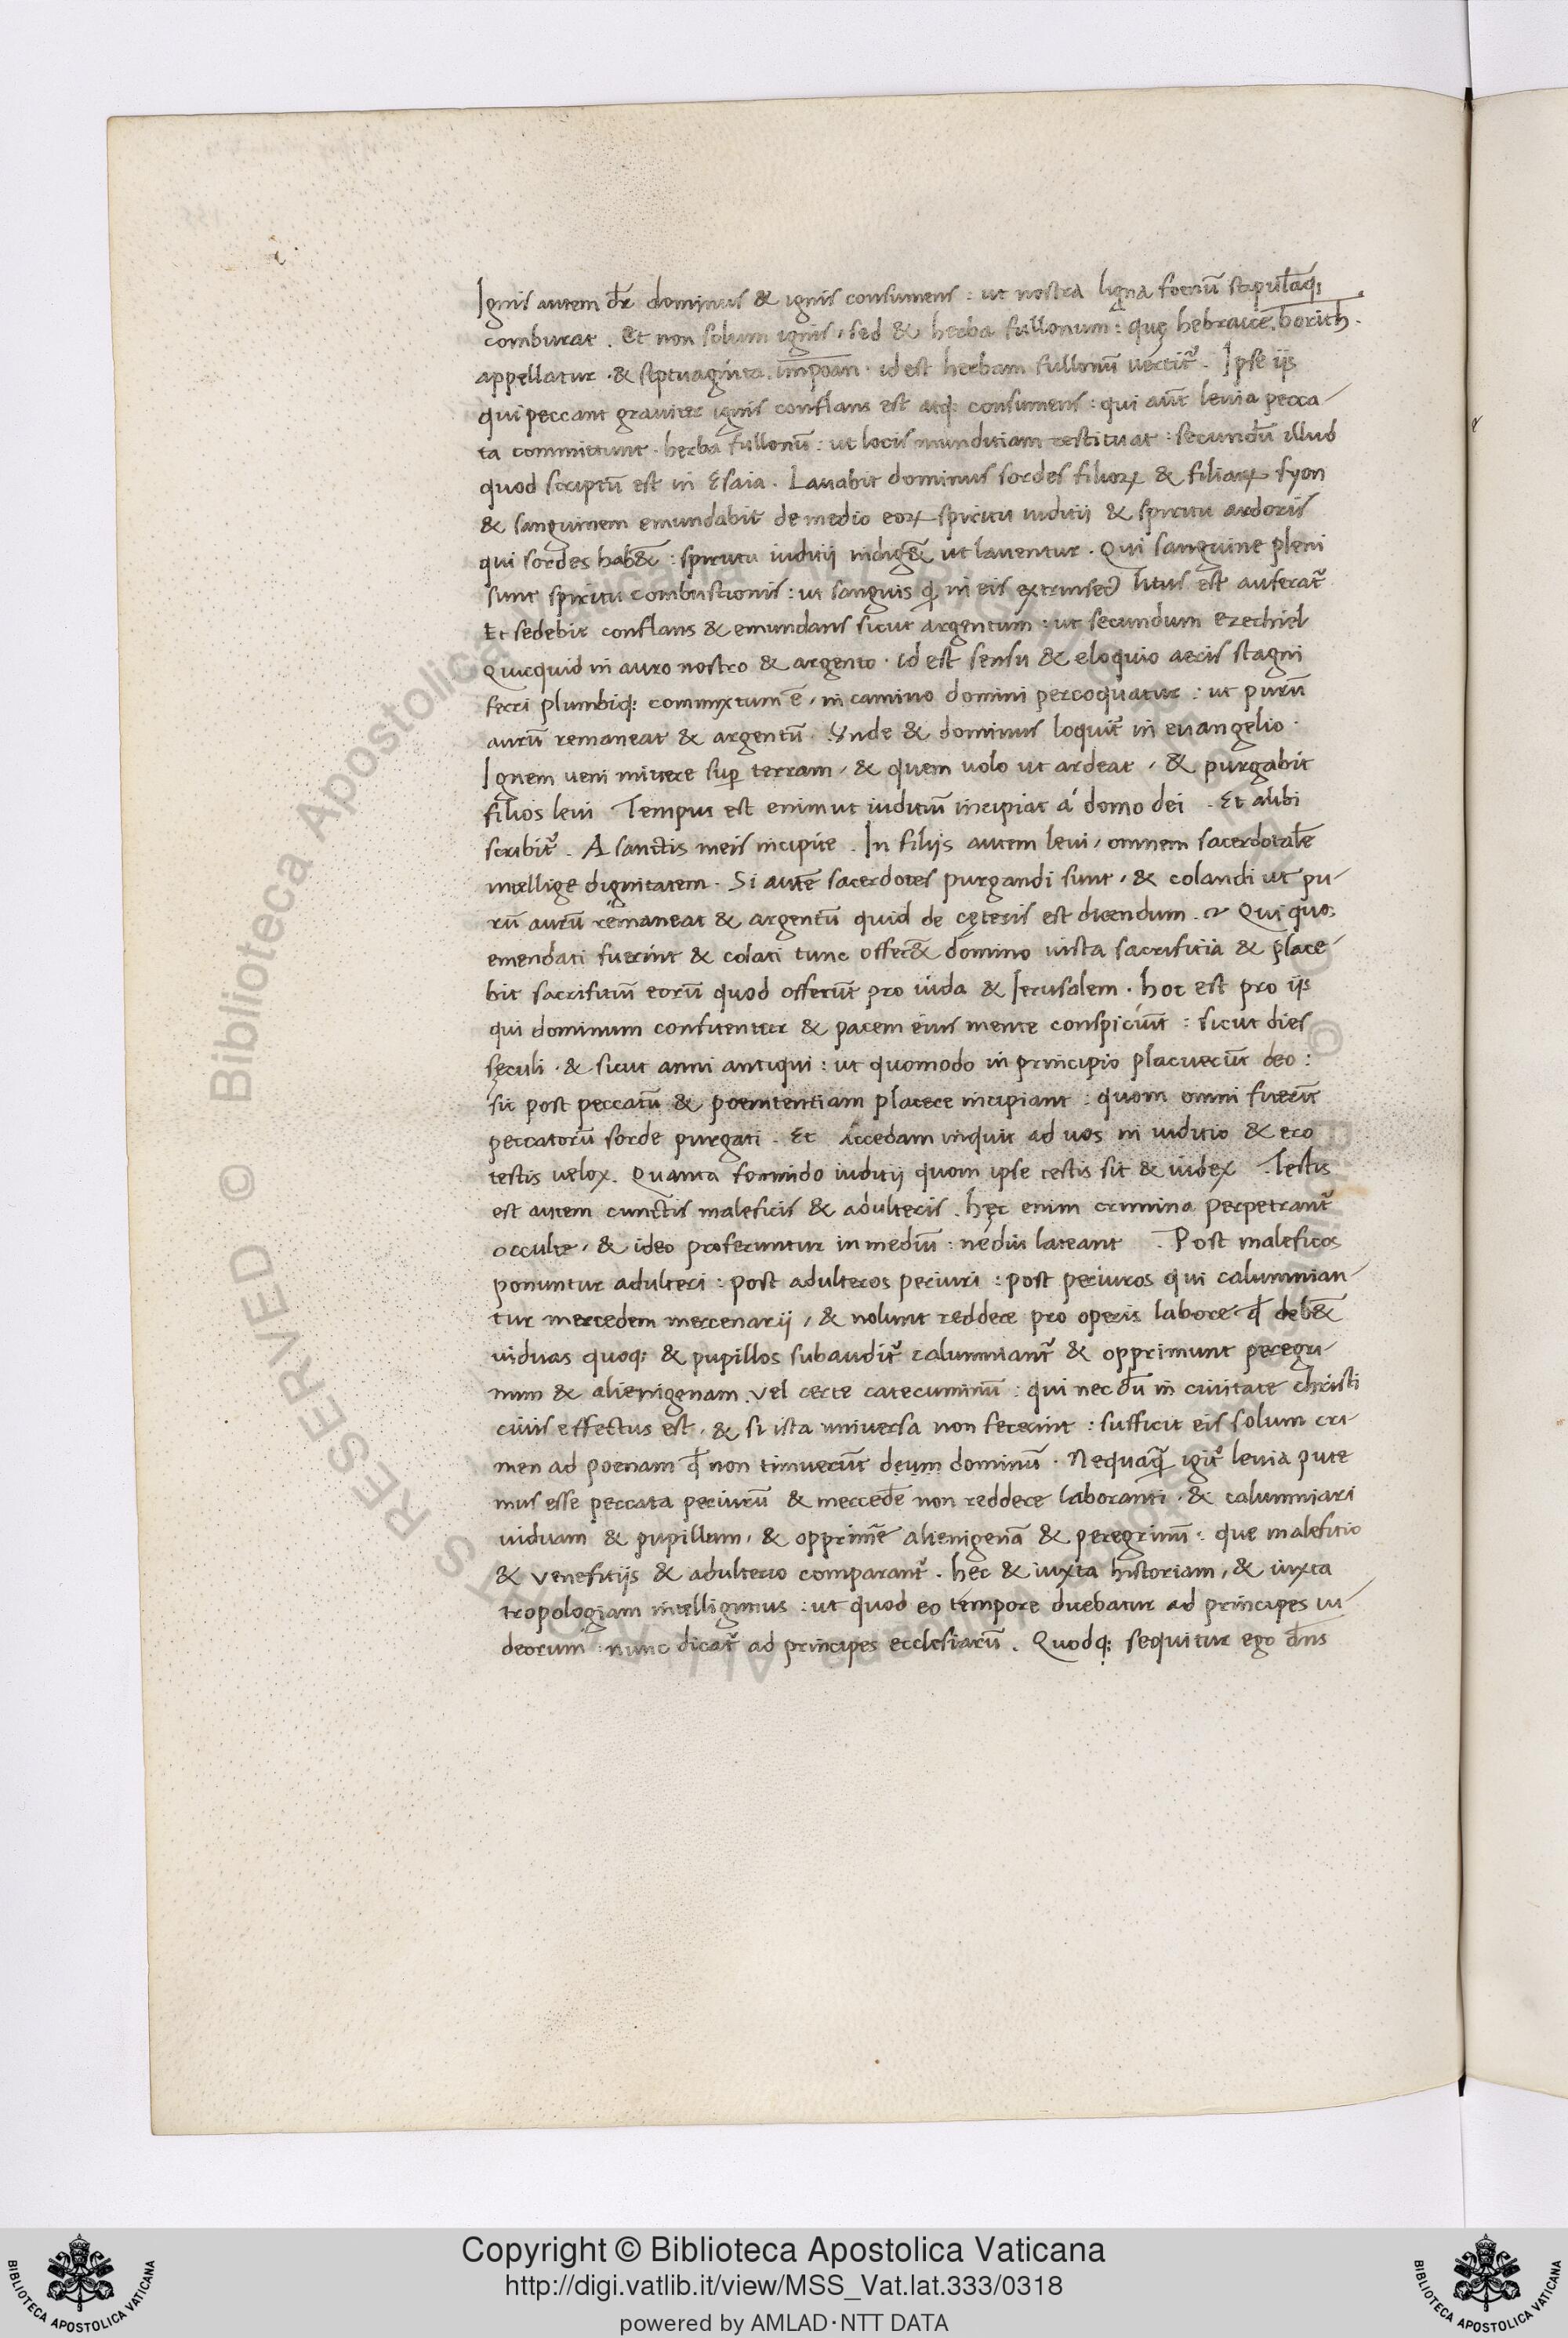 Ignis autem dr̄ dominus & ignis consumens : ut nostra ligna foenū stipulāq;
comburat . Et non solum ignis , sed & herba fullonum : quę hebraice . borith .
appellatur . & septuaginta . impoan . id est herbam fullonū vertit᷑ . Ipse iis
qui peccant graviter ignis conflans est atq; consumens : qui aūt levia pecca-
ta committunt . herba fullonū : ut locis munditiam restituat : secundū illud
quod scriptū est in Esaia . Lavabit dominus sordes filioꝝ & filiaꝝ syon
& sanguinem emundabit de medio eoꝝ spiritu iuditii & spiritu ardoris
qui sordes hab&̄ : spiritu iuditij indig&̄ ut laventur . Qui sanguine pleni
sunt spiritu combustionis : ut sanguis q̄ in eis extrinsec᷒ litus est auferat᷑
Et sedebit conflans & emundans sicut argentum : ut secundum ezechiel
Quicquid in auro nostro & argento . id est sensu & eloquio aeris stagni
ferri plumbiq; commixtum ē , in camino domini percoquatur : ut purū
aurū remaneat & argentū . Vnde & dominus loquit᷑ in evangelio .
Ignem veni mittere sup̄ terram , & quem volo ut ardeat , & purgabit
filios levi Tempus est enim ut iuditiū incipiat á domo dei . Et alibi
scribit᷑ . A sanctis meis incipite . In filijs autem levi , omnem sacerdotalē
intellige dignitatem . Si autē sacerdotes purgandi sunt , & colandi ut pu-
rū aurū remaneat & argentū quid de cęteris est dicendum . ? Qui quo;
emendati fuerint & colati tunc offer&̄ domino iusta sacrifitia & place-
bit sacrifitiū eorū quod offerūt pro iuda & Ierusalem . hoc est pro iis
qui dominum confitentur & pacem eius mente conspiciūt : sicut dies
sęculi . & sicut anni antiqui : ut quomodo in principio placuerūt deo :
sic post peccatū & poenitentiam placere incipiant : quom omni fuerīt
peccatorū sorde purgati . Et Accedam inquit ad vos in iuditio & ero
testis velox . Quanta formido iuditij quom ipse testis sit & iudex . Testis
est autem cunctis maleficis & adulteris . hęc enim crimina perpetrant᷑
occulte , & ideo proferuntur in mediū : ne diu lateant . Post maleficos
ponuntur adulteri : post adulteros periuri : post periuros qui calumnian-
tur mercedem mercenarij , & nolunt reddere pro operis labore q̄ deb&̄
viduas quoq; & pupillos subaudit᷑ calumniant᷑ & opprimunt peregri-
num & alienigenam . vel certe catecuminū : qui nec dū in civitate christi
civis effectus est , & si ista universa non fecerint : sufficit eis solum cri-
men ad poenam q̄ non timuerūt deum dominū . Nequaq̄ igit᷑ levia pute
mus esse peccata periurū & mercedē non reddere laboranti , & calumniari
viduam & pupillum , & opprimē̄ alienigenā & peregrinū : que malefitio
& venefitijs & adulterio comparant᷑ . hec & iuxta historiam , & iuxta
tropologiam intelligimus : ut quod eo tempore dicebatur ad principes iu-
deorum : nunc dicat᷑ ad principes ecclesiarū . Quodq; sequitur ego dn̄s
© Biblioteca Apostolica Vaticana
ALL RIGHTS RESERVED
Copyright © Biblioteca Apostolica Vaticana
http://digi.vatlib.it/view/MSS_Vat.lat.333/0318
powered by AMLAD·NTT DATA
BIBLIOTECA APOSTOLICA VATICANA
BIBLIOTECA APOSTOLICA VATICANA